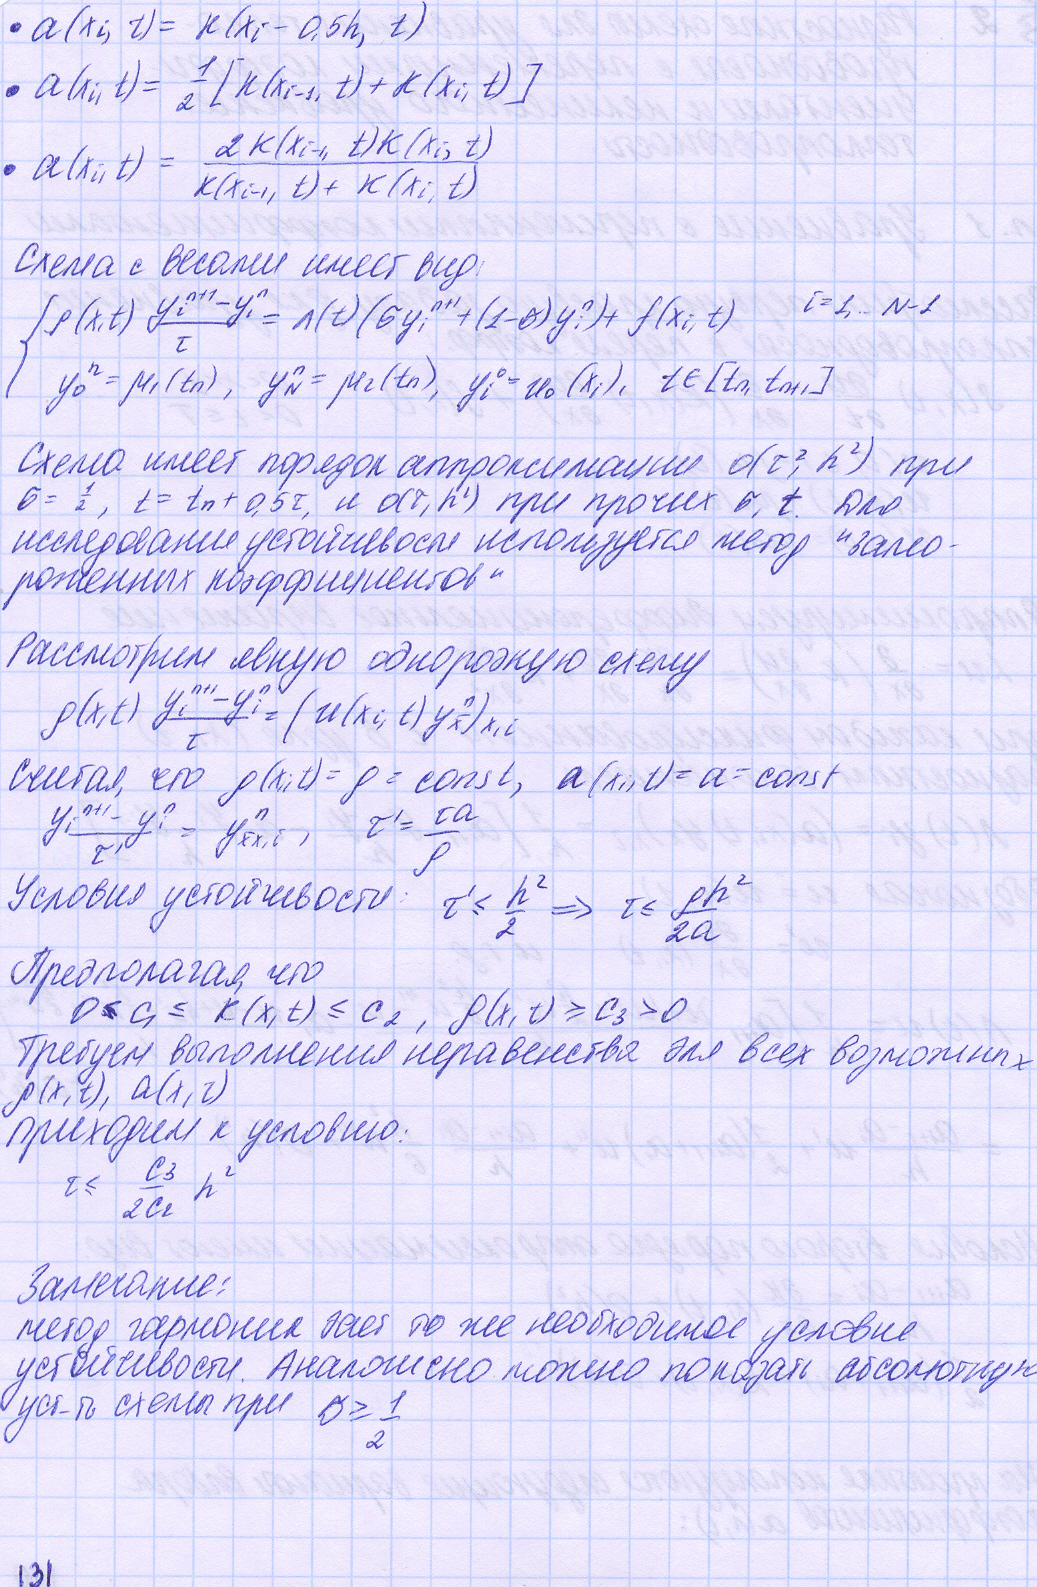 • a(xᵢ, t) = k(xᵢ - 0,5h, t)
• a(xᵢ, t) = 1/2 [k(xᵢ₋₁, t) + k(xᵢ, t)]
• a(xᵢ, t) = 2k(xᵢ₋₁, t)k(xᵢ, t) / k(xᵢ₋₁, t) + k(xᵢ, t)
Схема с весами имеет вид:
ρ(x,t) (yᵢⁿ⁺¹ - yᵢⁿ)/τ = Λ(t)(σyᵢⁿ⁺¹ + (1-σ)yᵢⁿ) + f(xᵢ, t) i=1,.. N-1
y₀ⁿ = μ₁(tₙ), y_Nⁿ = μ₂(tₙ), yᵢ⁰ = u₀(xᵢ), t ∈ [tₙ, tₙ₊₁]
Схема имеет порядок аппроксимации O(τ², h²) при
σ = 1/2, t = tₙ + 0,5τ, и O(τ, h²) при прочих σ, t. Для
исследования устойчивости используется метод "замо-
роженных коэффициентов"
Рассмотрим явную однородную схему
ρ(x,t) (yᵢⁿ⁺¹ - yᵢⁿ)/τ = (a(xᵢ, t) y_x̄ⁿ)_x,i
Считая, что ρ(xᵢ,t) = ρ = const, a(xᵢ,t) = a = const
(yᵢⁿ⁺¹ - yᵢⁿ)/τ' = yⁿ_x̄x,i , τ' = τa/ρ
Условия устойчивости: τ' ≤ h²/2 => τ ≤ ρh²/2a
Предполагая, что
0 ≤ c₁ ≤ k(x,t) ≤ c₂ , ρ(x,t) ≥ c₃ > 0
Требуем выполнения неравенства для всех возможных
ρ(x,t), a(x,t)
приходим к условию:
τ ≤ c₃/2c₂ h²
Замечание:
метод гармоник дает то же необходимое условие
устойчивости. Аналогично можно показать абсолютную
уст-ть схемы при σ ≥ 1/2
131